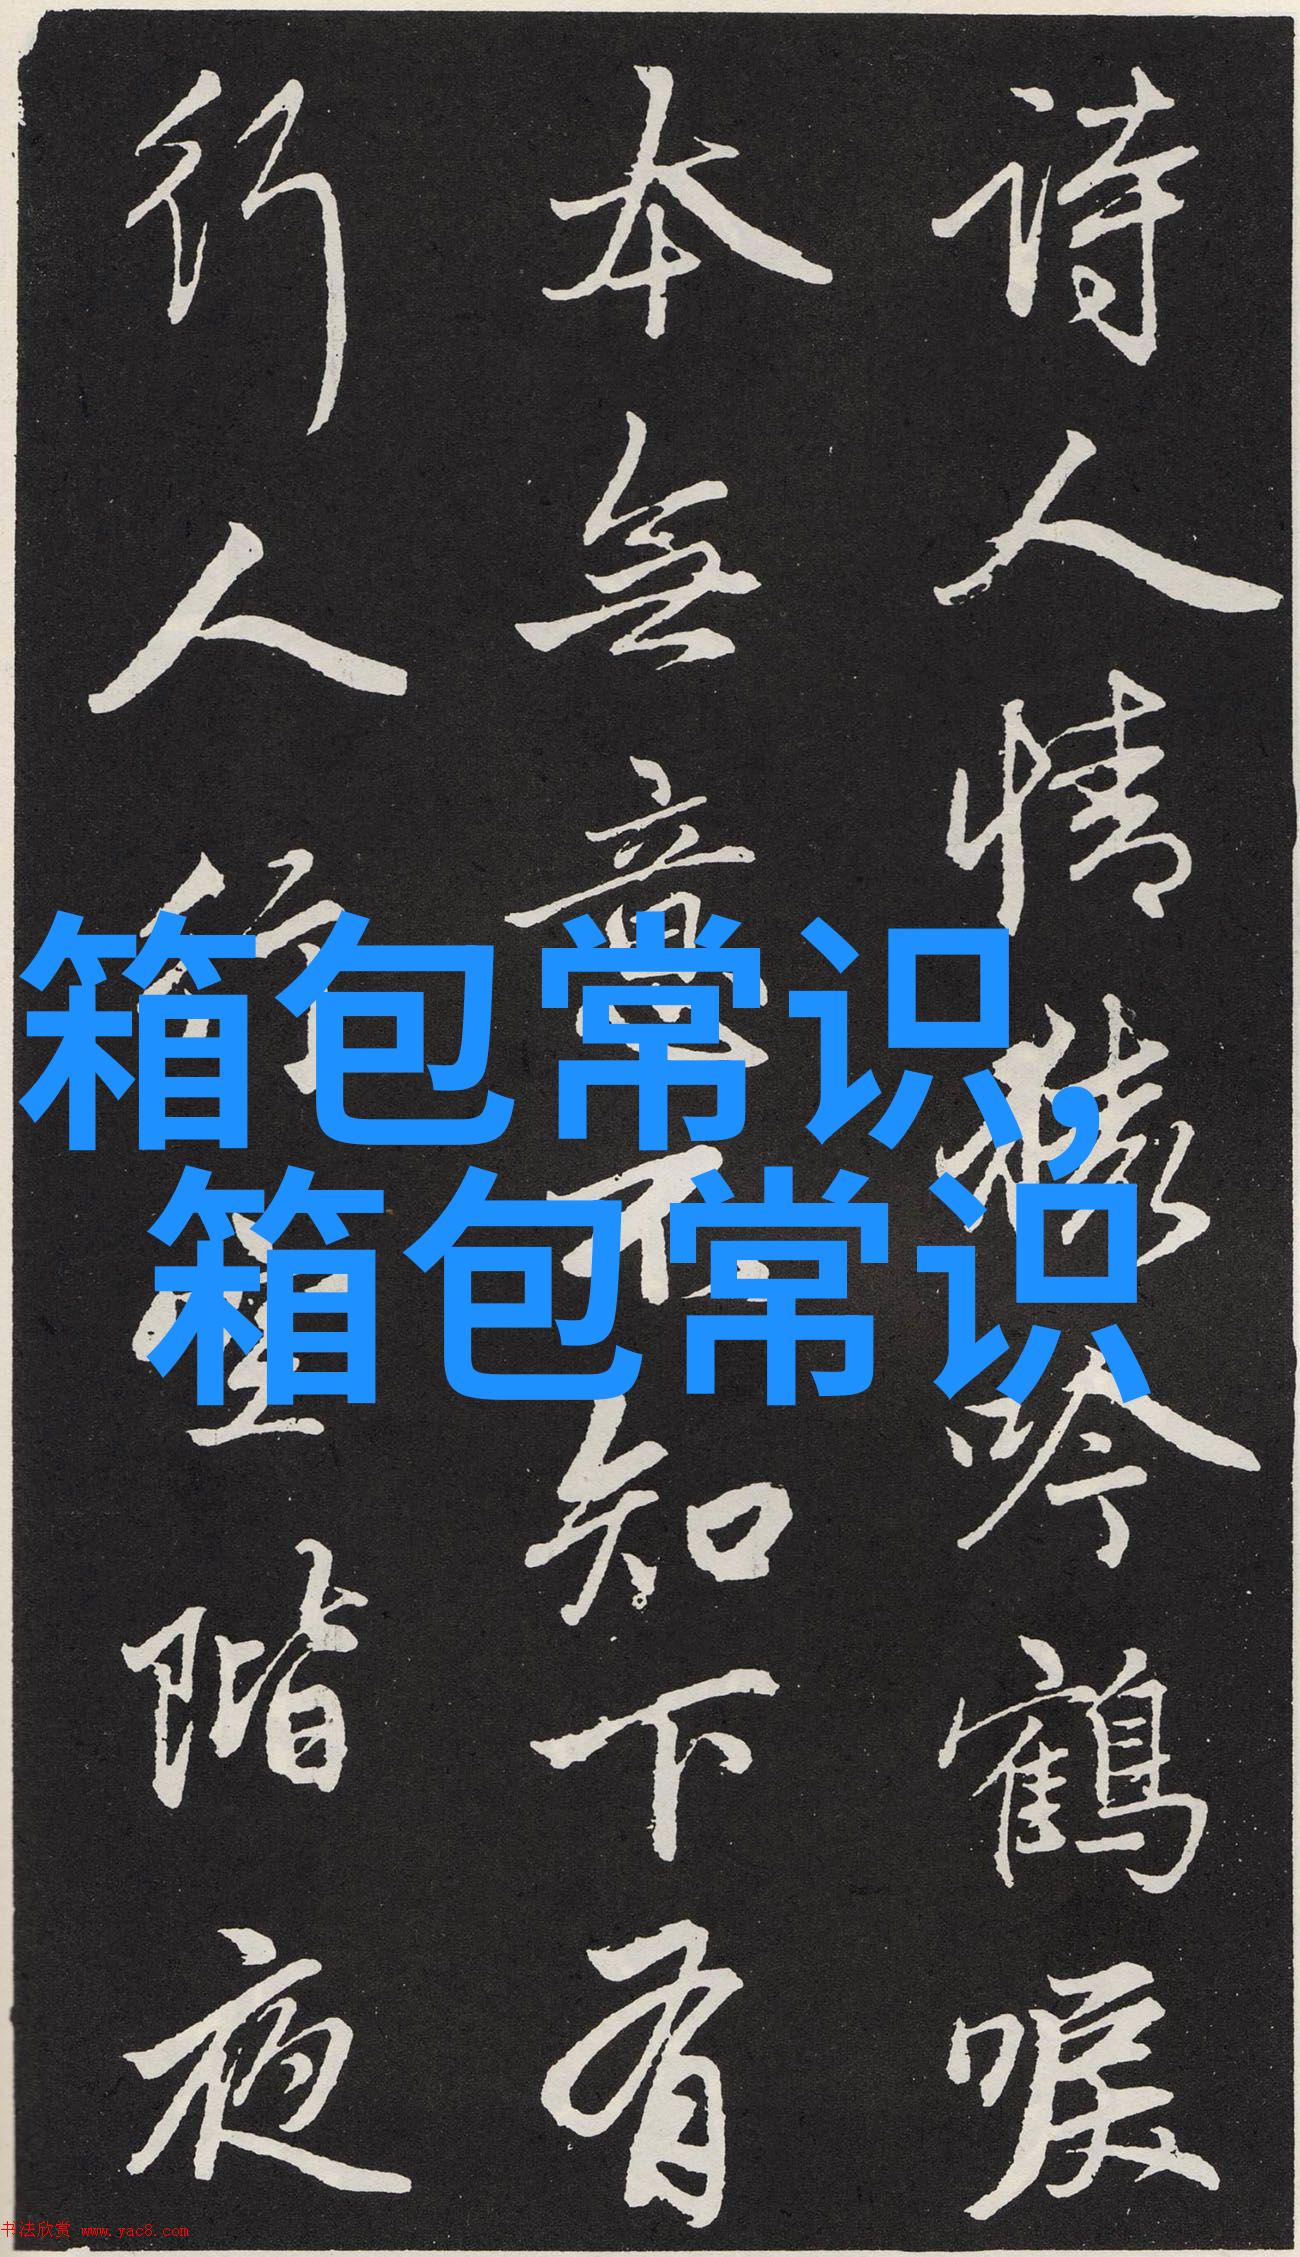 诗人情猿吟鹤唳
本无意不知下有
行人行空阶夜
箱包常识,
箱包常识
书法欣赏 www.yac8.com